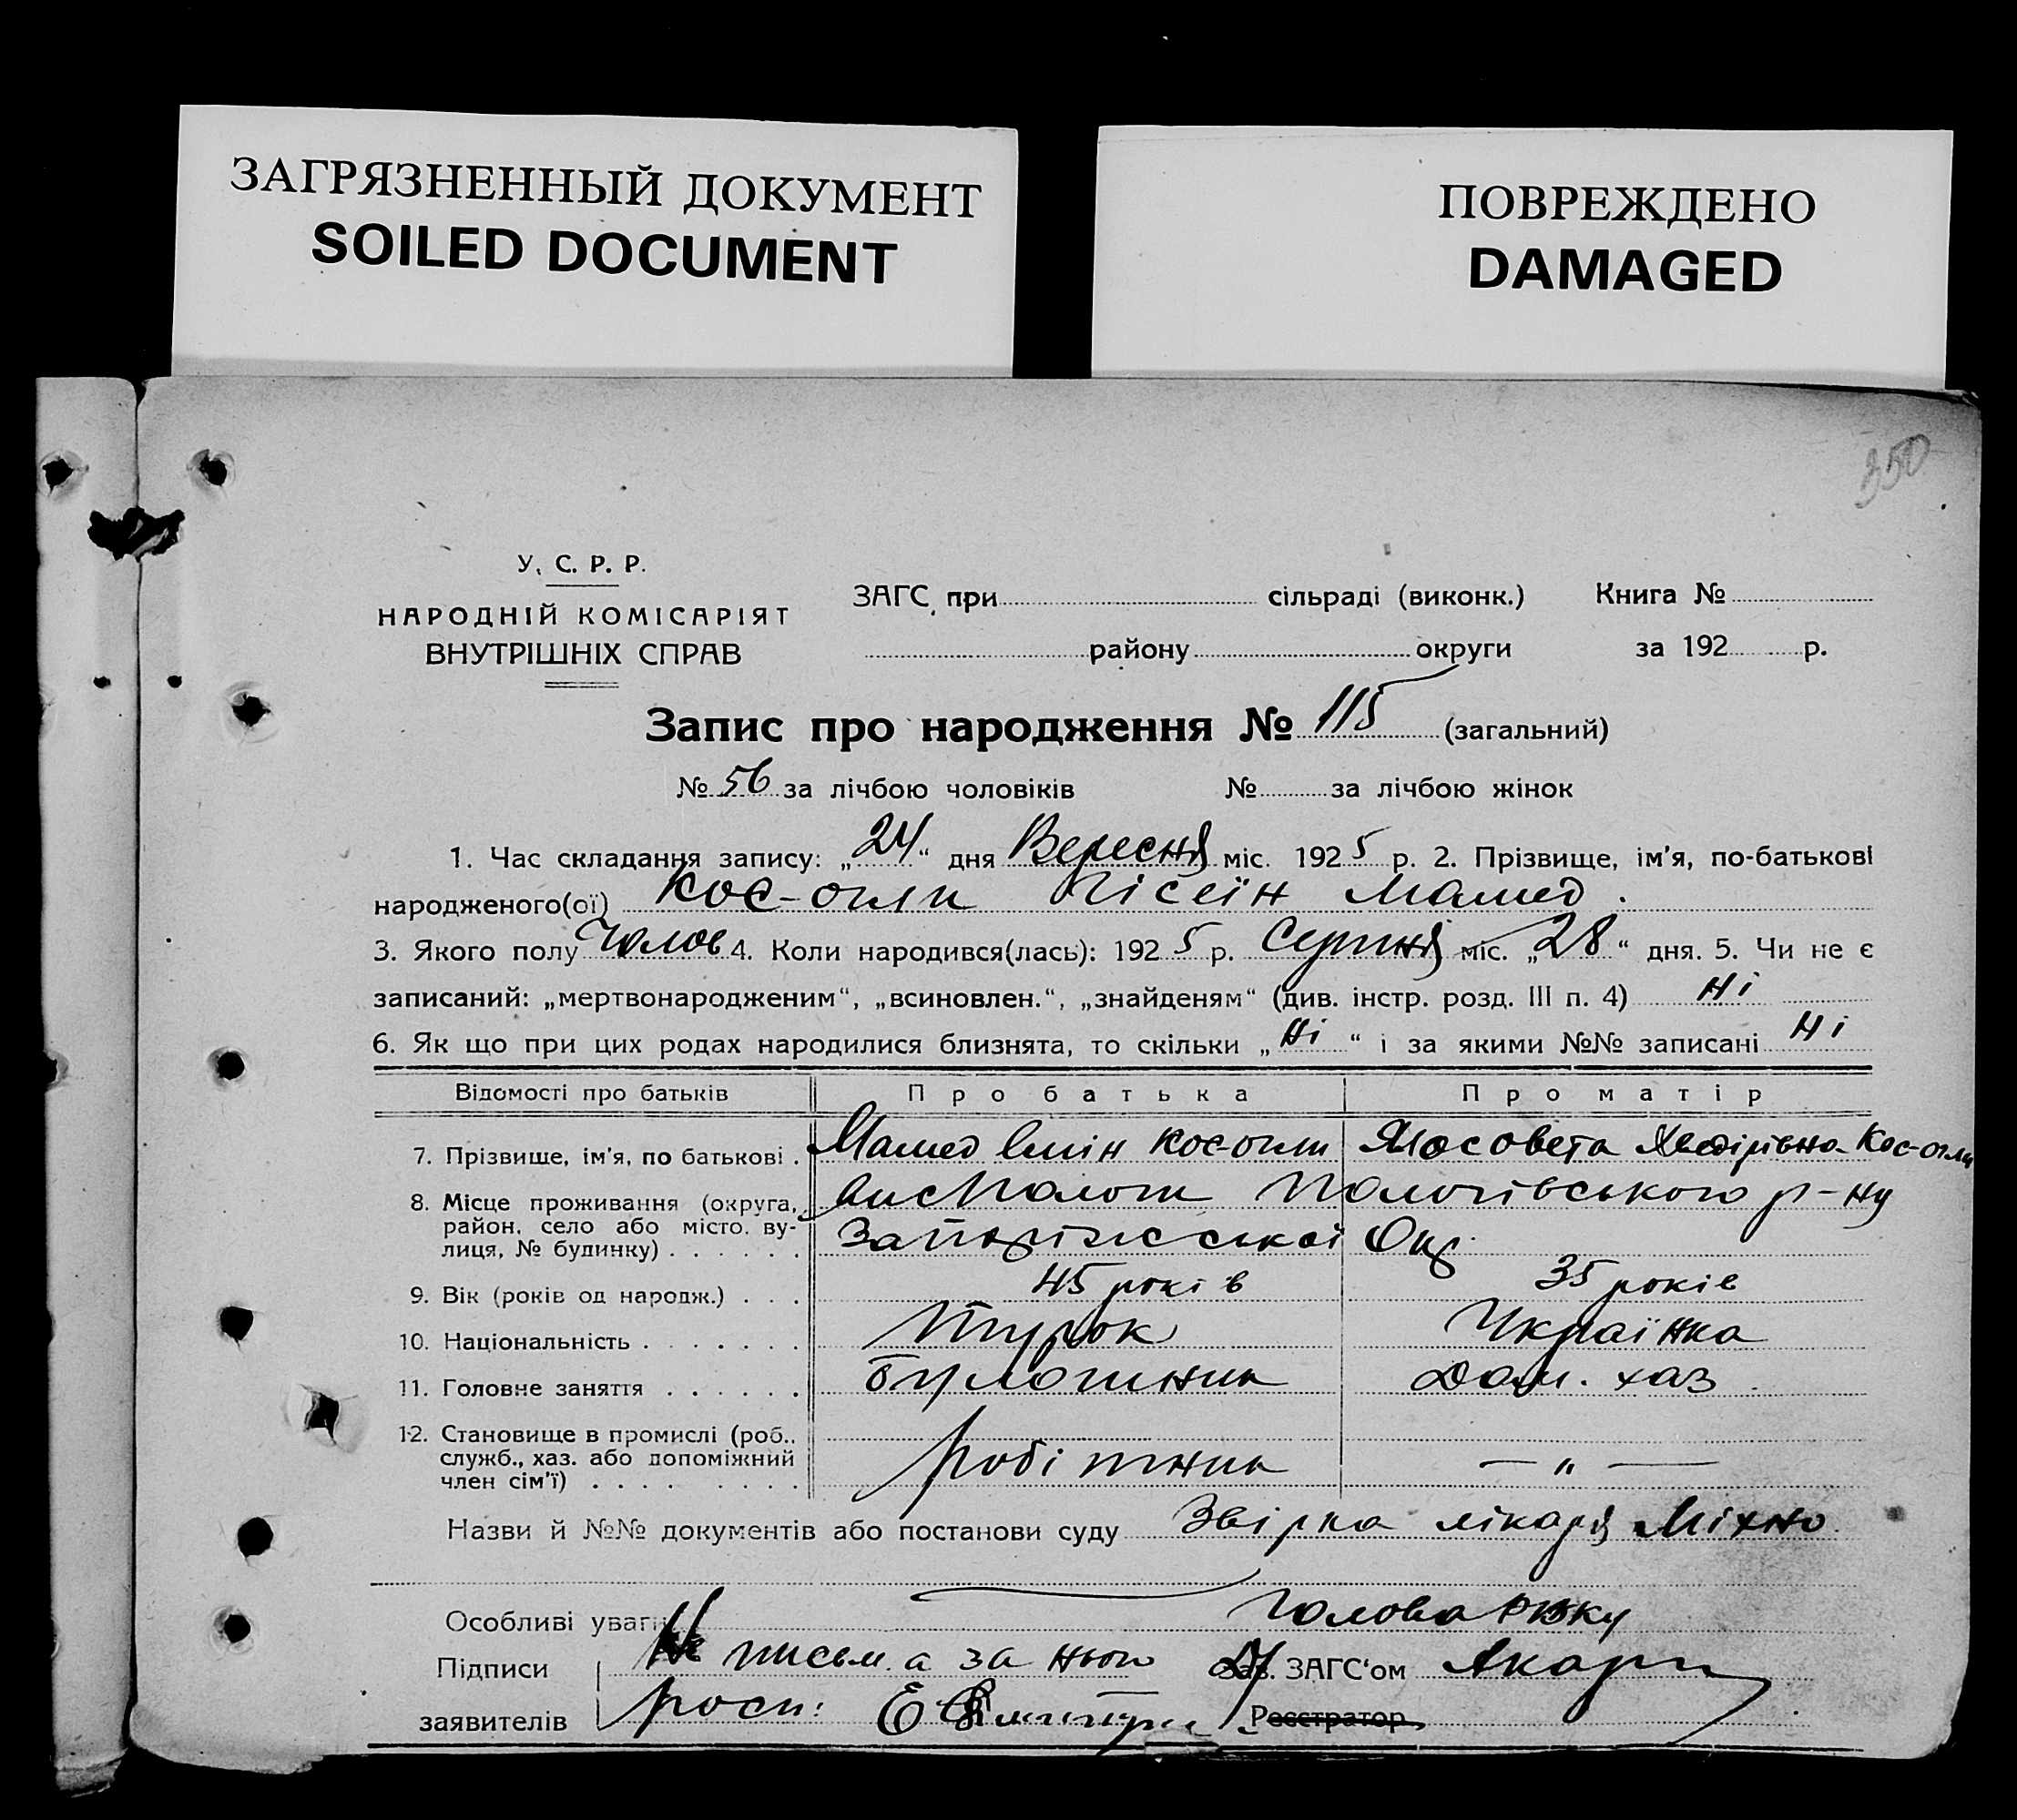 ЗАГРЯЗНЕННЫЙ ДОКУМЕНТ
SOILED DOCUMENT
ПОВРЕЖДЕНО
DAMAGED
350
У. С. Р. Р.
НАРОДНІЙ КОМІСАРІЯТ
ВНУТРІШНІХ СПРАВ
ЗАГС при сільраді (виконк.) Книга №
району округи за 192 р.
Запис про народження № 115 (загальний)
№ 56 за лічбою чоловіків № за лічбою жінок
1. Час складання запису: „24“ дня Вересня міс. 1925 р. 2. Прізвище, ім'я, по-батькові
народженого(ої) Кос-огли Гісеїн Мамед.
3. Якого полу Чолов 4. Коли народився(лась): 1925 р. Серпня міс. „28“ дня. 5. Чи не є
записаний: „мертвонародженим“, „всиновлен.“, „знайденям“ (див. інстр. розд. III п. 4) Ні
6. Як що при цих родах народилися близнята, то скільки „Ні“ і за якими №№ записані Ні
Відомості про батьків Про батька Про матір
7. Прізвище, ім'я, по батькові . Мамед Емін Кос-огли Кос-огли
8. Місце проживання (округа, Пологівського р-ну
район, село або місто, ву-
лиця, № будинку) . . . . . . Запоріжської Окр.
9. Вік (років од народж.) . . . 45 років 35 років
10. Національність . . . . . . . Турок Українка
11. Головне заняття . . . . . . Булошник Дом. хаз
12. Становище в промислі (роб.,
служб., хаз. або допоміжний
член сім'ї) . . . . . . . . Робітник — „ —
Назви й №№ документів або постанови суду Звірка лікаря Міхно
Особливі уваги Голова
Підписи Не письм. а за нього Зав. ЗАГС'ом
заявителів росп: Реєстратор